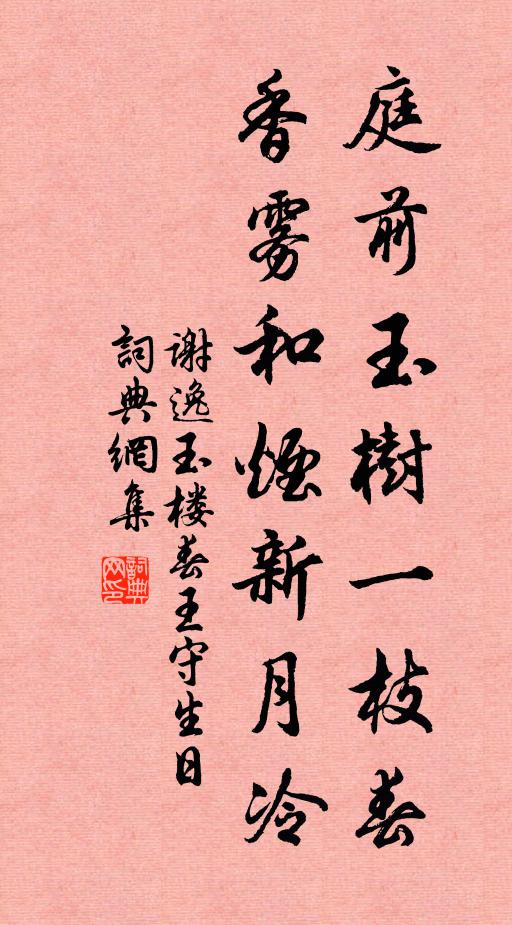 庭前玉樹一枝春
香雾和煙新月冷
谢逸玉楼春王守生日
詞典網集
詞典网印